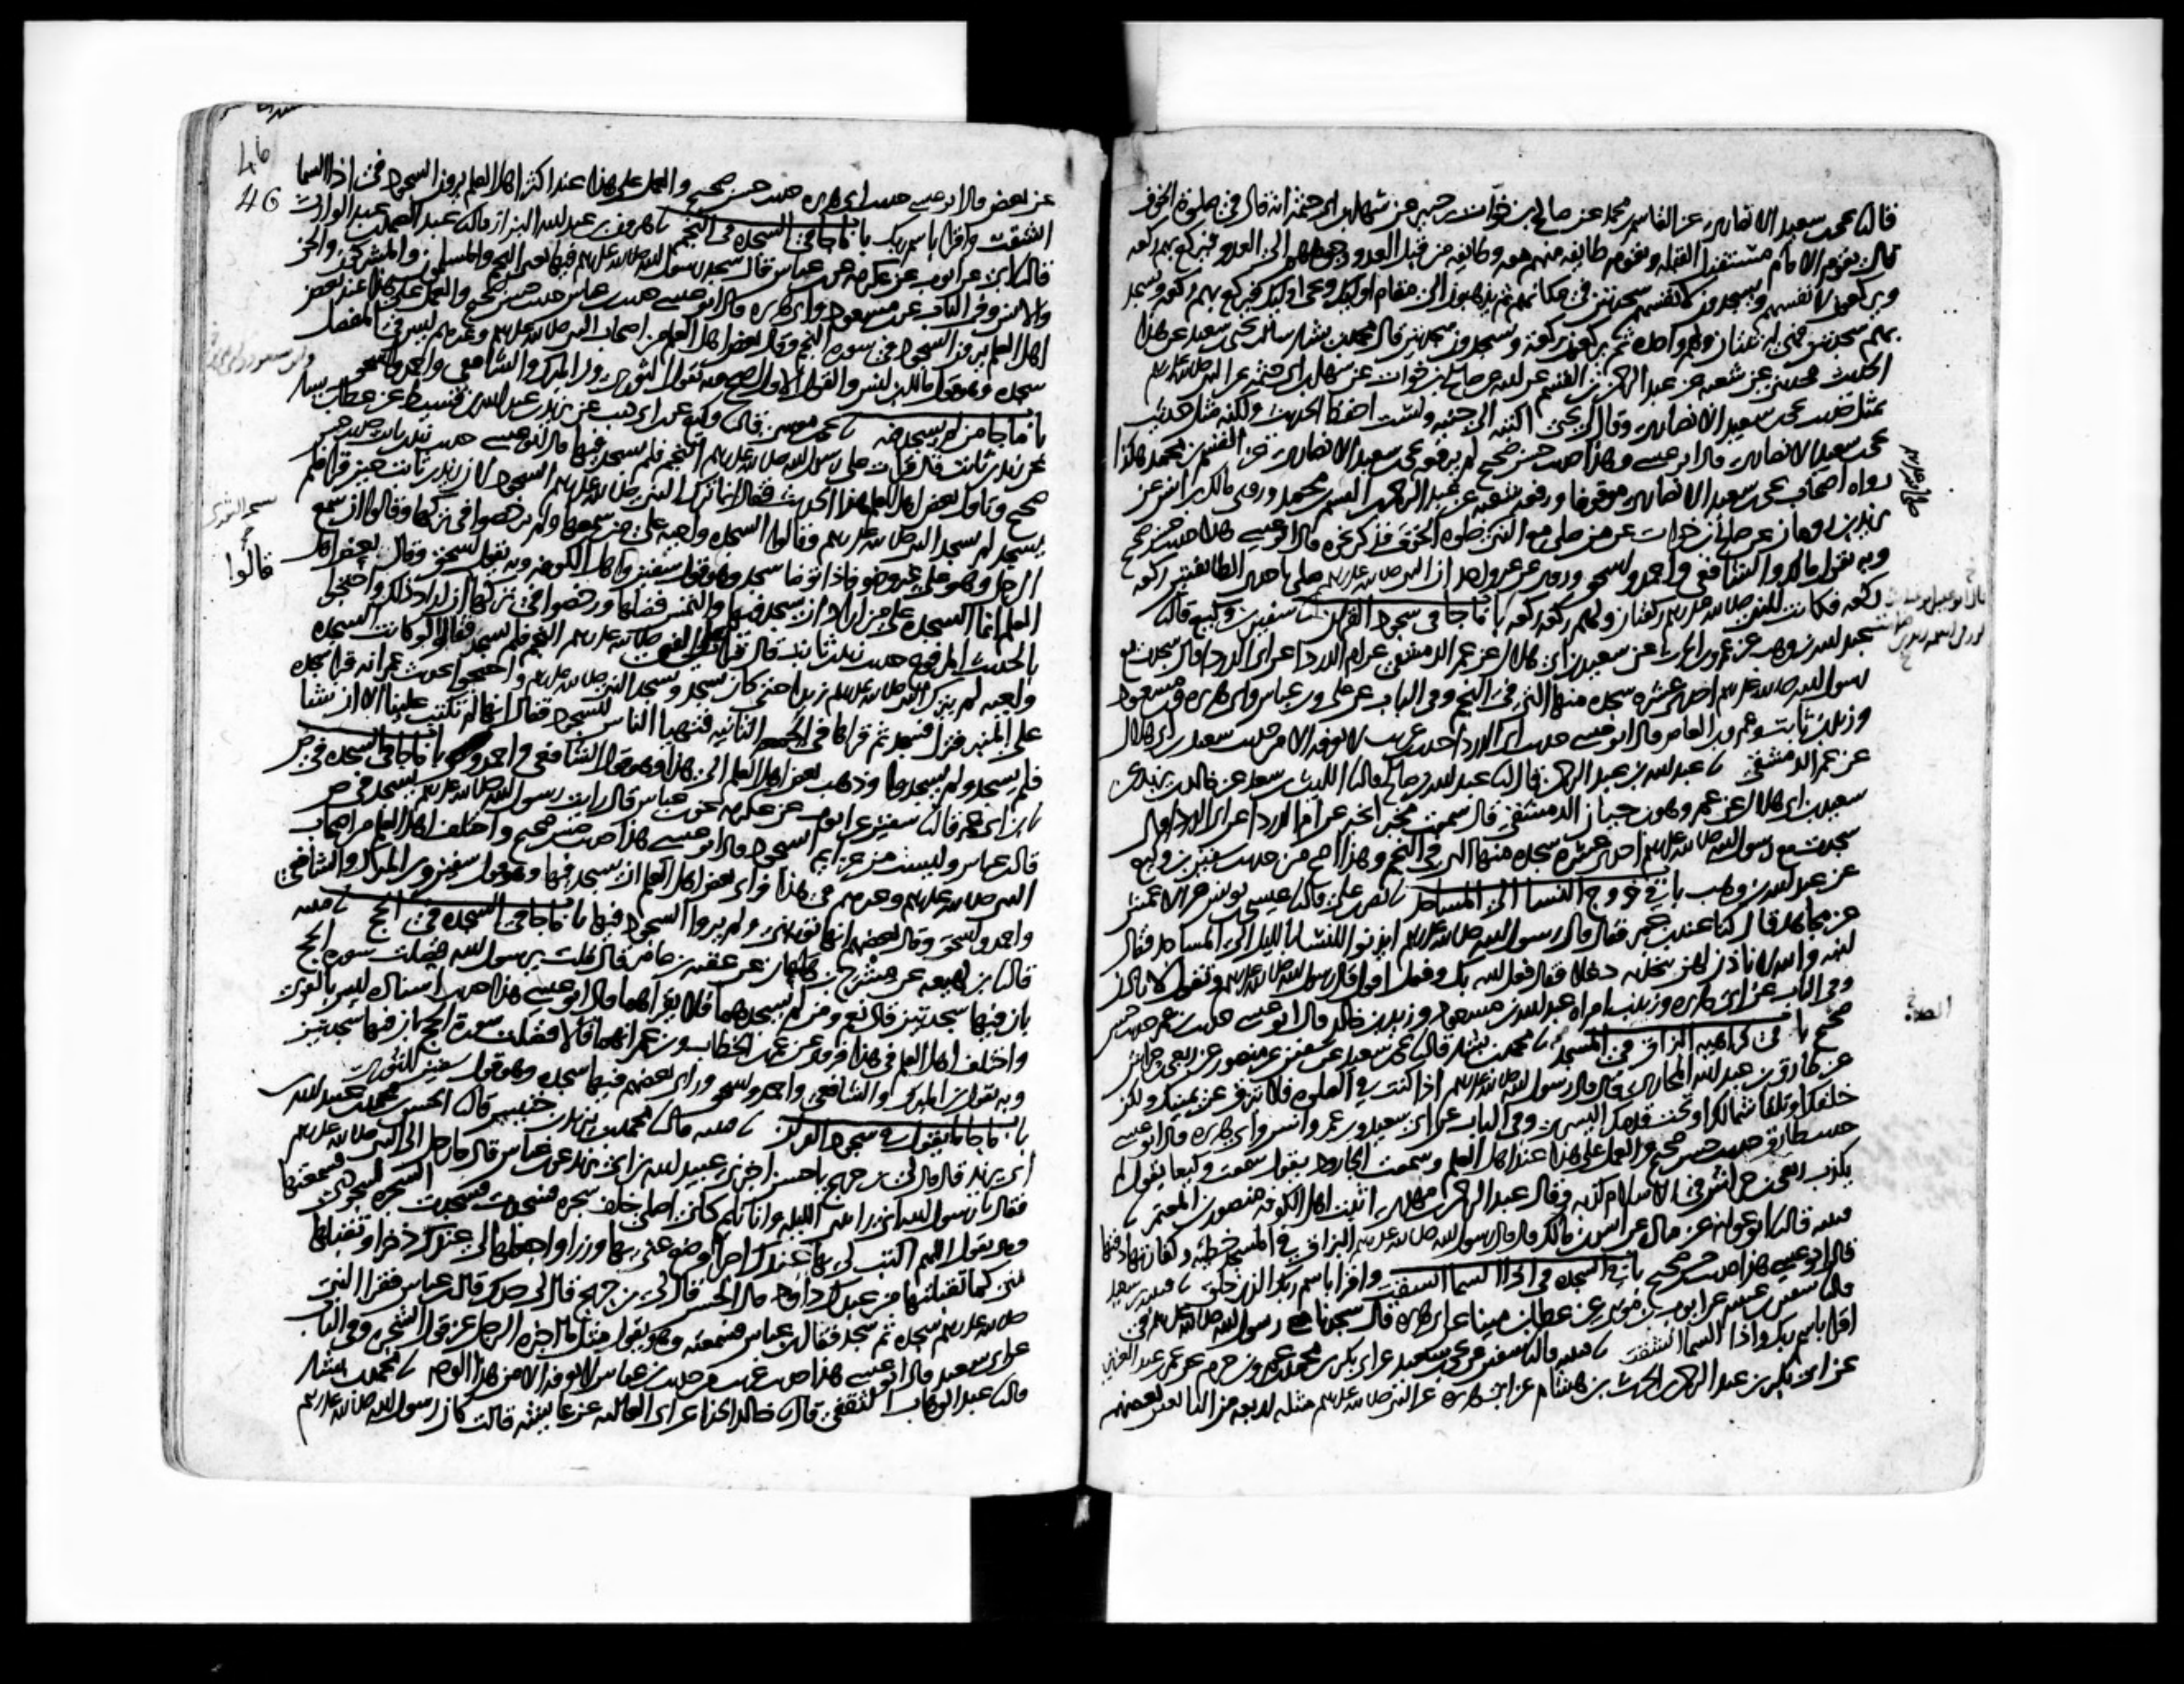 قال نا يحيى بن سعيد الانصاري عن القاسم بن محمد عن صالح بن خوات بن جبير عن سهل بن ابي حثمة انه قال في صلوة الخوف
قال يقوم الامام مستقبل القبلة وتقوم طايفة منهم معه وطايفة من قبل العدو وجوههم الى العدو فيركع بهم ركعة
ويركعون لانفسهم ويسجدون لانفسهم سجدتين في مكانهم ثم يذهبون الى مقام اوليك ويجي اوليك فيركع بهم ركعة ويسجد
بهم سجدتين فهي له ثنتان ولهم واحدة ثم يركعون ركعة ويسجدون سجدتين قال محمد بن بشار سالت يحيى بن سعيد عن هذا
الحديث فحدثني عن شعبة عن عبد الرحمن بن القسم عن ابيه عن صالح بن خوات عن سهل بن ابي حثمة عن النبي صلى الله عليه وسلم
بمثل حديث يحيى بن سعيد الانصاري وقال لي يحيى اكتبه الى جنبه ولست احفظ الحديث ولكنه مثل حديث
يحيى بن سعيد الانصاري قال ابو عيسى وهذا حديث حسن صحيح لم يرفعه يحيى بن سعيد الانصاري عن القسم بن محمد هكذا
رواه اصحاب يحيى بن سعيد الانصاري موقوفا ورفعه شعبة عن عبد الرحمن بن القسم بن محمد وروى مالك بن انس عن
يزيد بن رومان عن صالح بن خوات عن من صلى مع النبي صلوة الخوف فذكر نحوه قال ابو عيسى هذا حديث حسن صحيح
وبه يقول مالك والشافعي واحمد واسحق وروي عن غير واحد ان النبي صلى الله عليه وسلم صلى باحدى الطايفتين ركعة
ركعة فكانت للنبي صلى الله عليه وسلم ركعتان ولهم ركعة ركعة باب ما جا في سجود القران نا سفين بن وكيع قال نا
عبد الله بن وهب عن عمرو بن الحرث عن سعيد بن ابي هلال عن عمر الدمشقي عن ام الدردا عن ابي الدردا قال سجدت مع
رسول الله صلى الله عليه وسلم احدى عشرة سجدة منها التي في النجم وفي الباب عن علي وابن عباس وابي هريرة وابن مسعود
وزيد بن ثابت وعمرو بن العاص قال ابو عيسى حديث ابي الدردا حديث غريب لا نعرفه الا من حديث سعيد بن ابي هلال
عن عمر الدمشقي نا عبد الله بن عبد الرحمن قال نا عبد الله بن صالح قال نا الليث بن سعد عن خالد بن يزيد عن
سعيد بن ابي هلال عن عمر وهو بن حيان الدمشقي قال سمعت مخبرا يخبر عن ام الدردا عن ابي الدردا قال
سجدت مع رسول الله صلى الله عليه وسلم احدى عشرة سجدة منها التي في النجم وهذا اصح من حديث سفين بن وكيع
عن عبد الله بن وهب باب في خروج النسا الى المساجد نا نصر بن علي قال نا عيسى بن يونس عن الاعمش
عن مجاهد قال كنا عند ابن عمر فقال قال رسول الله صلى الله عليه وسلم ايذنوا للنسا بالليل الى المساجد فقال
ابنه والله لا ناذن لهن يتخذنه دغلا فقال فعل الله بك وفعل اقول قال رسول الله صلى الله عليه وسلم وتقول لا ناذن
وفي الباب عن ابي هريرة وزينب امراة عبد الله بن مسعود وزيد بن خالد قال ابو عيسى حديث ابن عمر حديث حسن
صحيح باب في كراهية البزاق في المسجد نا محمد بن بشار قال نا يحيى بن سعيد عن سفين عن منصور عن ربعي بن حراش
عن طارق بن عبد الله المحاربي قال قال رسول الله صلى الله عليه وسلم اذا كنت في الصلوة فلا تبزق عن يمينك ولكن
خلفك او تلقا شمالك او تحت قدمك اليسرى وفي الباب عن ابي سعيد وابن عمر وانس وابي هريرة قال ابو عيسى
حديث طارق حديث حسن صحيح والعمل على هذا عند اهل العلم وسمعت الجارود يقول سمعت وكيعا يقول لم
يكذب ربعي بن حراش في الاسلام كذبة وقال عبد الرحمن بن مهدي اثبت اهل الكوفة منصور بن المعتمر نا
قتيبة قال نا ابو عوانة عن قتادة عن انس بن مالك قال قال رسول الله صلى الله عليه وسلم البزاق في المسجد خطية وكفارتها دفنها
قال ابو عيسى هذا حديث حسن صحيح باب في السجدة في اذا السما انشقت واقرا باسم ربك الذي خلق نا قتيبة بن سعيد
قال نا سفين بن عيينة عن ايوب بن موسى عن عطا بن مينا عن ابي هريرة قال سجدنا مع رسول الله صلى الله عليه وسلم في
اقرا باسم ربك واذا السما انشقت نا قتيبة قال نا سفين عن يحيى بن سعيد عن ابي بكر بن محمد بن عمرو بن حزم عن عمر بن عبد العزيز
عن ابي بكر بن عبد الرحمن بن الحرث بن هشام عن ابي هريرة عن النبي صلى الله عليه وسلم مثله اربعة من التابعين بعضهم
46
46
عن بعض قال ابو عيسى حديث ابي هريرة حديث حسن صحيح والعمل على هذا عند اكثر اهل العلم يرون السجود في اذا السما
انشقت واقرا باسم ربك باب ما جا في السجدة في النجم نا هرون بن عبد الله البزاز قال نا عبد الصمد بن عبد الوارث
قال نا ابي عن ايوب عن عكرمة عن ابن عباس قال سجد رسول الله صلى الله عليه وسلم فيها يعني النجم والمسلمون والمشركون والجن
والانس وفي الباب عن ابن مسعود وابي هريرة قال ابو عيسى حديث ابن عباس حديث حسن صحيح والعمل على هذا عند بعض
اهل العلم يرون السجود في سورة النجم وقال بعض اهل العلم من اصحاب النبي صلى الله عليه وسلم وغيرهم ليس في المفصل
سجدة وهو قول مالك بن انس والقول الاول اصح وبه يقول الثوري وابن المبارك والشافعي واحمد واسحق
باب ما جا من لم يسجد فيه نا يحيى بن موسى قال نا وكيع عن ابن ابي ذيب عن يزيد بن عبد الله بن قسيط عن عطا بن يسار
عن زيد بن ثابت قال قرات على رسول الله صلى الله عليه وسلم النجم فلم يسجد فيها قال ابو عيسى حديث زيد بن ثابت حديث حسن
صحيح وتاول بعض اهل العلم هذا الحديث فقال انما ترك النبي صلى الله عليه وسلم السجود لان زيد بن ثابت حين قرا فلم
يسجد لم يسجد النبي صلى الله عليه وسلم وقالوا السجدة واجبة على من سمعها ولم يرخصوا في تركها وقالوا ان سمع
الرجل وهو على غير وضو فاذا توضا سجد وهو قول سفين واهل الكوفة وبه يقول اسحق وقال بعض اهل
العلم انما السجدة على من اراد ان يسجد فيها والتمس فضلها ورخصوا في تركها ان اراد ذلك واحتجوا
بالحديث المرفوع حديث زيد بن ثابت قال قرات على النبي صلى الله عليه وسلم النجم فلم يسجد فقالوا لو كانت السجدة
واجبة لم يترك النبي صلى الله عليه وسلم زيدا حتى كان يسجد ويسجد النبي صلى الله عليه وسلم واحتجوا بحديث عمر انه قرا سجدة
على المنبر فنزل فسجد ثم قراها في الجمعة الثانية فتهيا الناس للسجود فقال انها لم تكتب علينا الا ان نشا
فلم يسجد ولم يسجدوا وذهب بعض اهل العلم الى هذا وهو قول الشافعي واحمد باب ما جا في السجدة في ص
نا ابن ابي عمر قال نا سفين عن ايوب عن عكرمة عن ابن عباس قال رايت رسول الله صلى الله عليه وسلم يسجد في ص
قال ابن عباس وليست من عزايم السجود قال ابو عيسى هذا حديث حسن صحيح واختلف اهل العلم من اصحاب
النبي صلى الله عليه وسلم وغيرهم في هذا فراى بعض اهل العلم ان يسجد فيها وهو قول سفين وابن المبارك والشافعي
واحمد واسحق وقال بعضهم انها توبة نبي ولم يروا السجود فيها باب ما جا في السجدة في الحج نا قتيبة
قال نا ابن لهيعة عن مشرح بن هاعان عن عقبة بن عامر قال قلت يرسول الله فضلت سورة الحج
بان فيها سجدتين قال نعم ومن لم يسجدهما فلا يقراهما قال ابو عيسى هذا حديث اسناده ليس بالقوي
واختلف اهل العلم في هذا فروي عن عمر بن الخطاب وابن عمر انهما قالا فضلت سورة الحج بان فيها سجدتين
وبه يقول ابن المبارك والشافعي واحمد واسحق وراى بعضهم فيها سجدة وهو قول سفين الثوري
باب ما جا ما يقول في سجود القران نا قتيبة قال نا محمد بن يزيد بن خنيس قال نا الحسن بن محمد بن عبيد الله بن
ابي يزيد قال قال لي ابن جريج يا حسن اخبرني عبيد الله بن ابي يزيد عن ابن عباس قال جا رجل الى النبي صلى الله عليه وسلم
فقال يا رسول الله اني رايتني الليلة وانا نايم كاني اصلي خلف شجرة فسجدت فسجدت الشجرة لسجودي فسمعتها
وهي تقول اللهم اكتب لي بها عندك اجرا وضع عني بها وزرا واجعلها لي عندك ذخرا وتقبلها
مني كما تقبلتها من عبدك داود قال الحسن قال لي ابن جريج قال لي جدك قال ابن عباس فقرا النبي
صلى الله عليه وسلم سجدة ثم سجد فقال ابن عباس فسمعته وهو يقول مثل ما اخبره الرجل عن قول الشجرة وفي الباب
عن ابي سعيد قال ابو عيسى هذا حديث غريب من حديث ابن عباس لا نعرفه الا من هذا الوجه نا محمد بن بشار
قال نا عبد الوهاب الثقفي قال نا خالد الحذا عن ابي العالية عن عايشة قالت كان رسول الله صلى الله عليه وسلم
قالوا